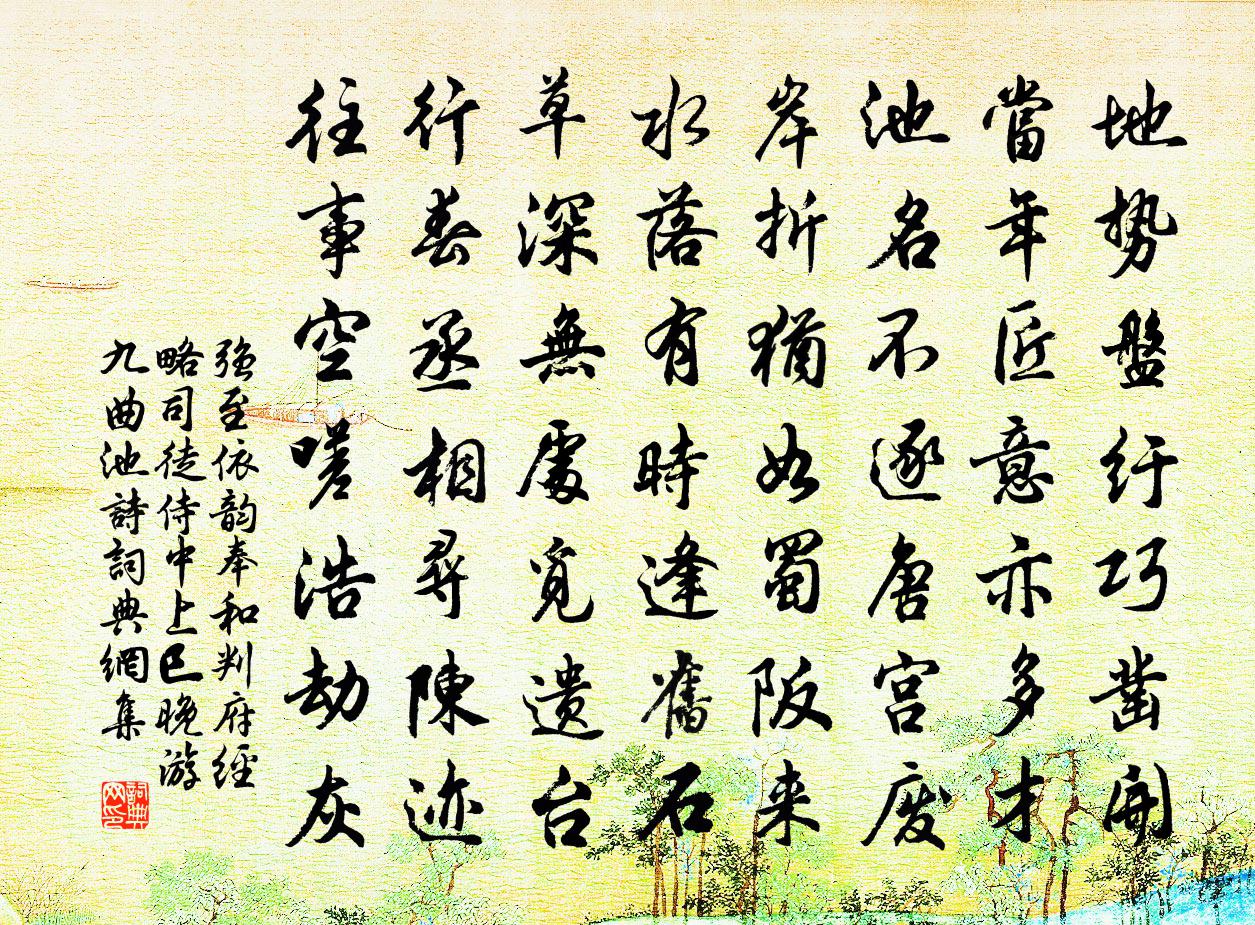 地势盤紆巧鑿開
當年匠意亦多才
池名不逐唐宮廢
岸折猶如蜀阪来
水落有時逢舊石
草深無處覓遗台
行春丞相尋陳迹
往事空嗟浩劫灰
強至依韵奉和判府經
略司徒侍中上巳晚游
九曲池詩詞典網集
詞典网印